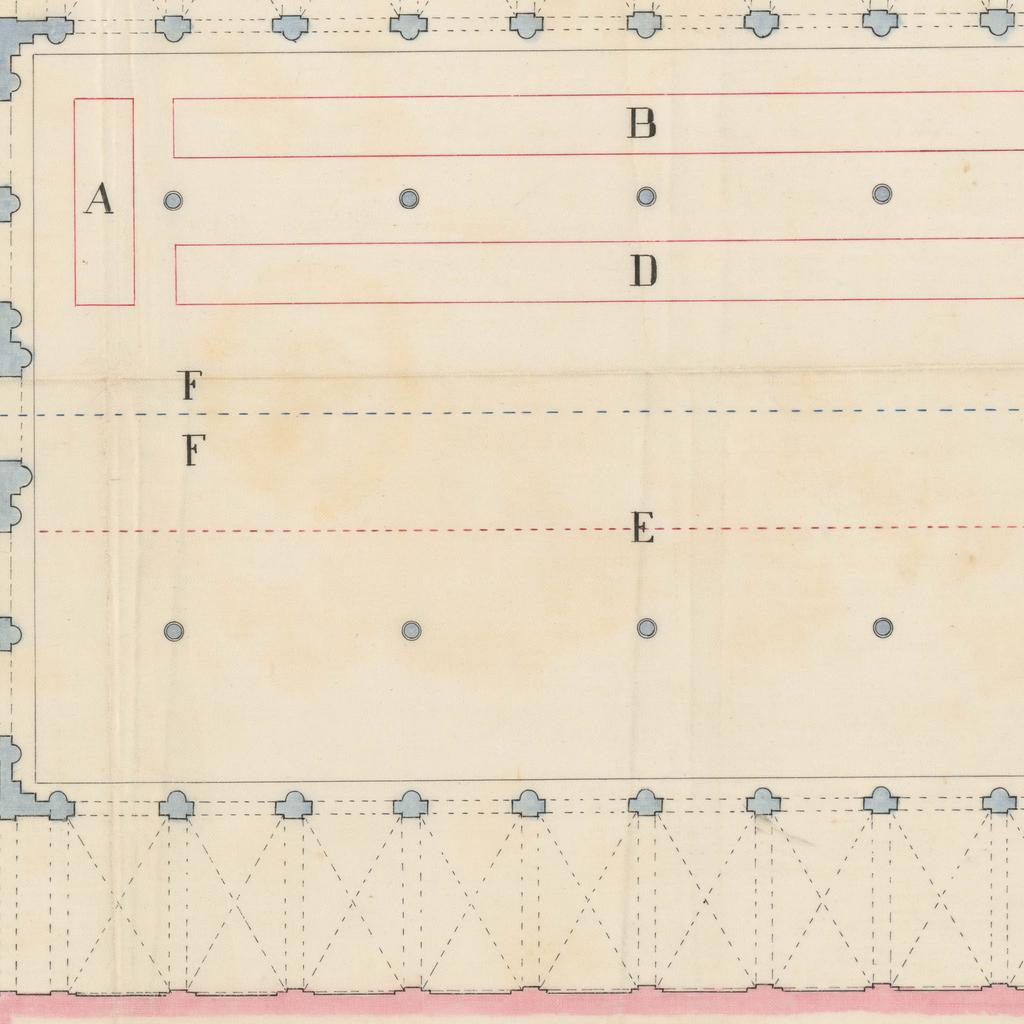 B
A
D
F
F
E